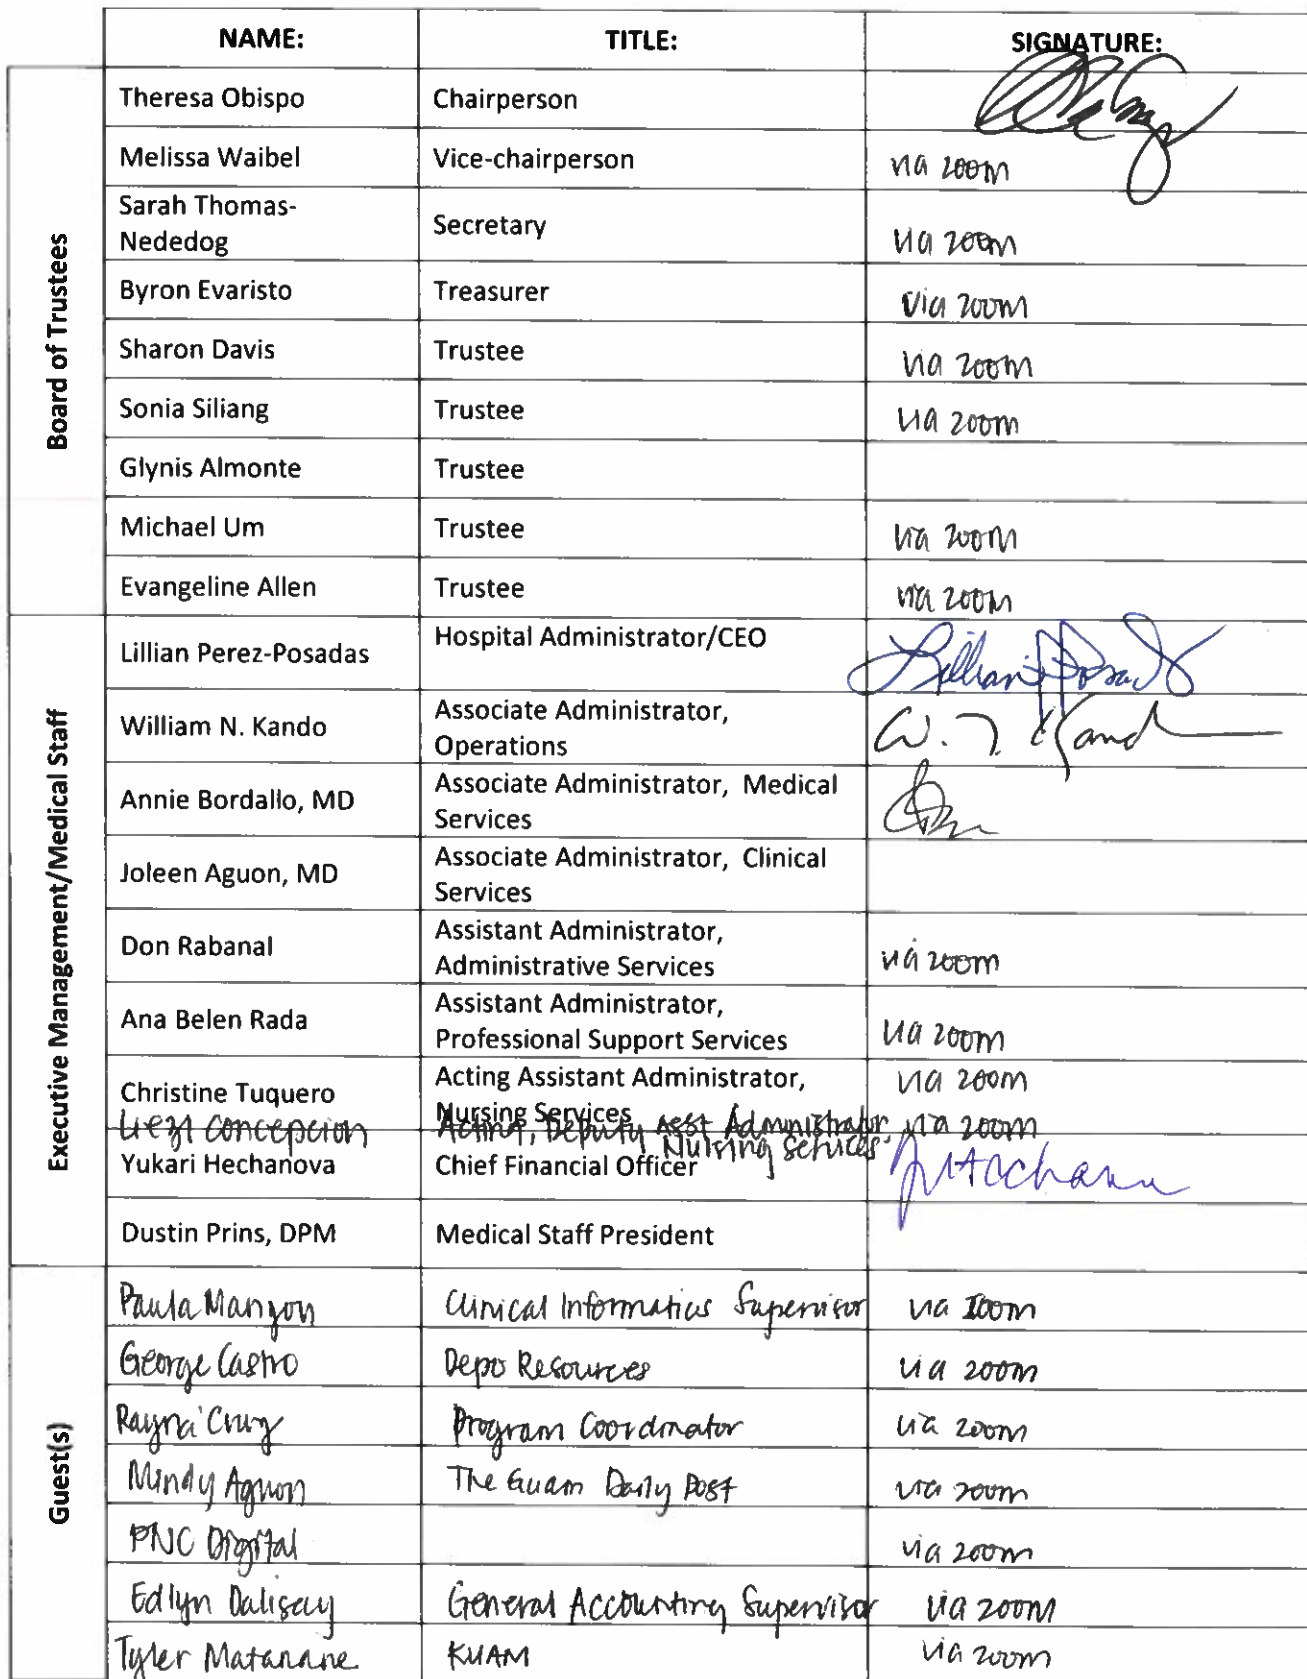 NAME: TITLE: SIGNATURE:
Board of Trustees
Theresa Obispo Chairperson
Melissa Waibel Vice-chairperson via zoom
Sarah Thomas-
Nededog Secretary via zoom
Byron Evaristo Treasurer via zoom
Sharon Davis Trustee via zoom
Sonia Siliang Trustee via zoom
Glynis Almonte Trustee
Michael Um Trustee via zoom
Evangeline Allen Trustee via zoom
Executive Management/Medical Staff
Lillian Perez-Posadas Hospital Administrator/CEO
William N. Kando Associate Administrator,
Operations
Annie Bordallo, MD Associate Administrator, Medical
Services
Joleen Aguon, MD Associate Administrator, Clinical
Services
Don Rabanal Assistant Administrator,
Administrative Services via zoom
Ana Belen Rada Assistant Administrator,
Professional Support Services via zoom
Christine Tuquero Acting Assistant Administrator, via zoom
Nursing Services
Liezl Concepcion Acting, Deputy Asst Administrator, via zoom
Nursing Services
Yukari Hechanova Chief Financial Officer
Dustin Prins, DPM Medical Staff President
Guest(s)
Paula Manzon Clinical Informatics Supervisor via zoom
George Castro Depo Resources via zoom
Rayna Cruz Program Coordinator via zoom
Mindy Aguon The Guam Daily Post via zoom
PNC Digital via zoom
Edlyn Dalisay General Accounting Supervisor via zoom
Tyler Matanane KUAM via zoom